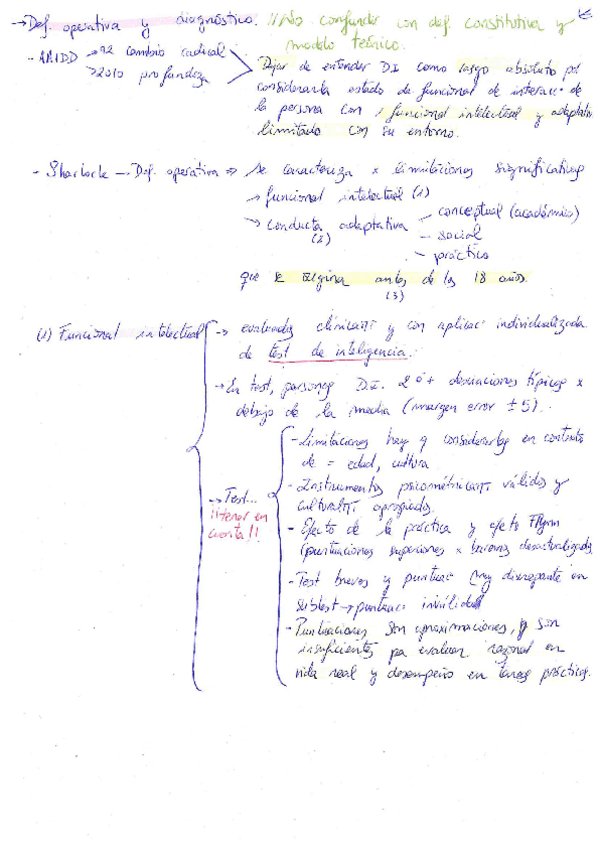 → Def. operativa y diagnóstico. // No confundir con def. constitutiva y
modelo teórico.
- AAIDD → 92 cambio radical
→ 2010 profundeza
Dejar de entender D.I como rasgo absoluto pa
considerarla estado de funcional de interacc de
la persona con ↓ funcional intelectual y adaptati
limitado con su entorno.
- Sharlock — Def. operativa ⇒ se caracteriza x limitaciones significativas
→ funcional intelectual (1)
→ conducta adaptativa (2)
— conceptual (académico)
— social
— práctica
que se origina antes de los 18 años.
(3)
(1) Funcional intelectual
→ evaluados clínicam y con aplicac individualizada
de test de inteligencia.
→ En test, personas D.I. 2 ó + desviaciones típicas x
debajo de la media (margen error ± 5).
→ Test...
¡¡tener en
cuenta!!
- Limitaciones hay q considerarlas en contexto
de = edad, cultura
- Instrumentos psicométricam válidos y
culturalm apropiados.
- Efecto de la práctica y efecto Flynn
(puntuaciones superiores x baremos desactualizados
- Test breves y puntuac muy discrepante en
subtest → puntuac inválida
- Puntuaciones son aproximaciones, y son
insuficientes pa evaluar razonal en
vida real y desempeño en tareas prácticas.